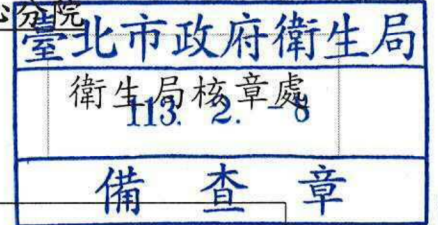 心分院
臺北市政府衛生局
衛生局核章處
113. 2. -8
備查章